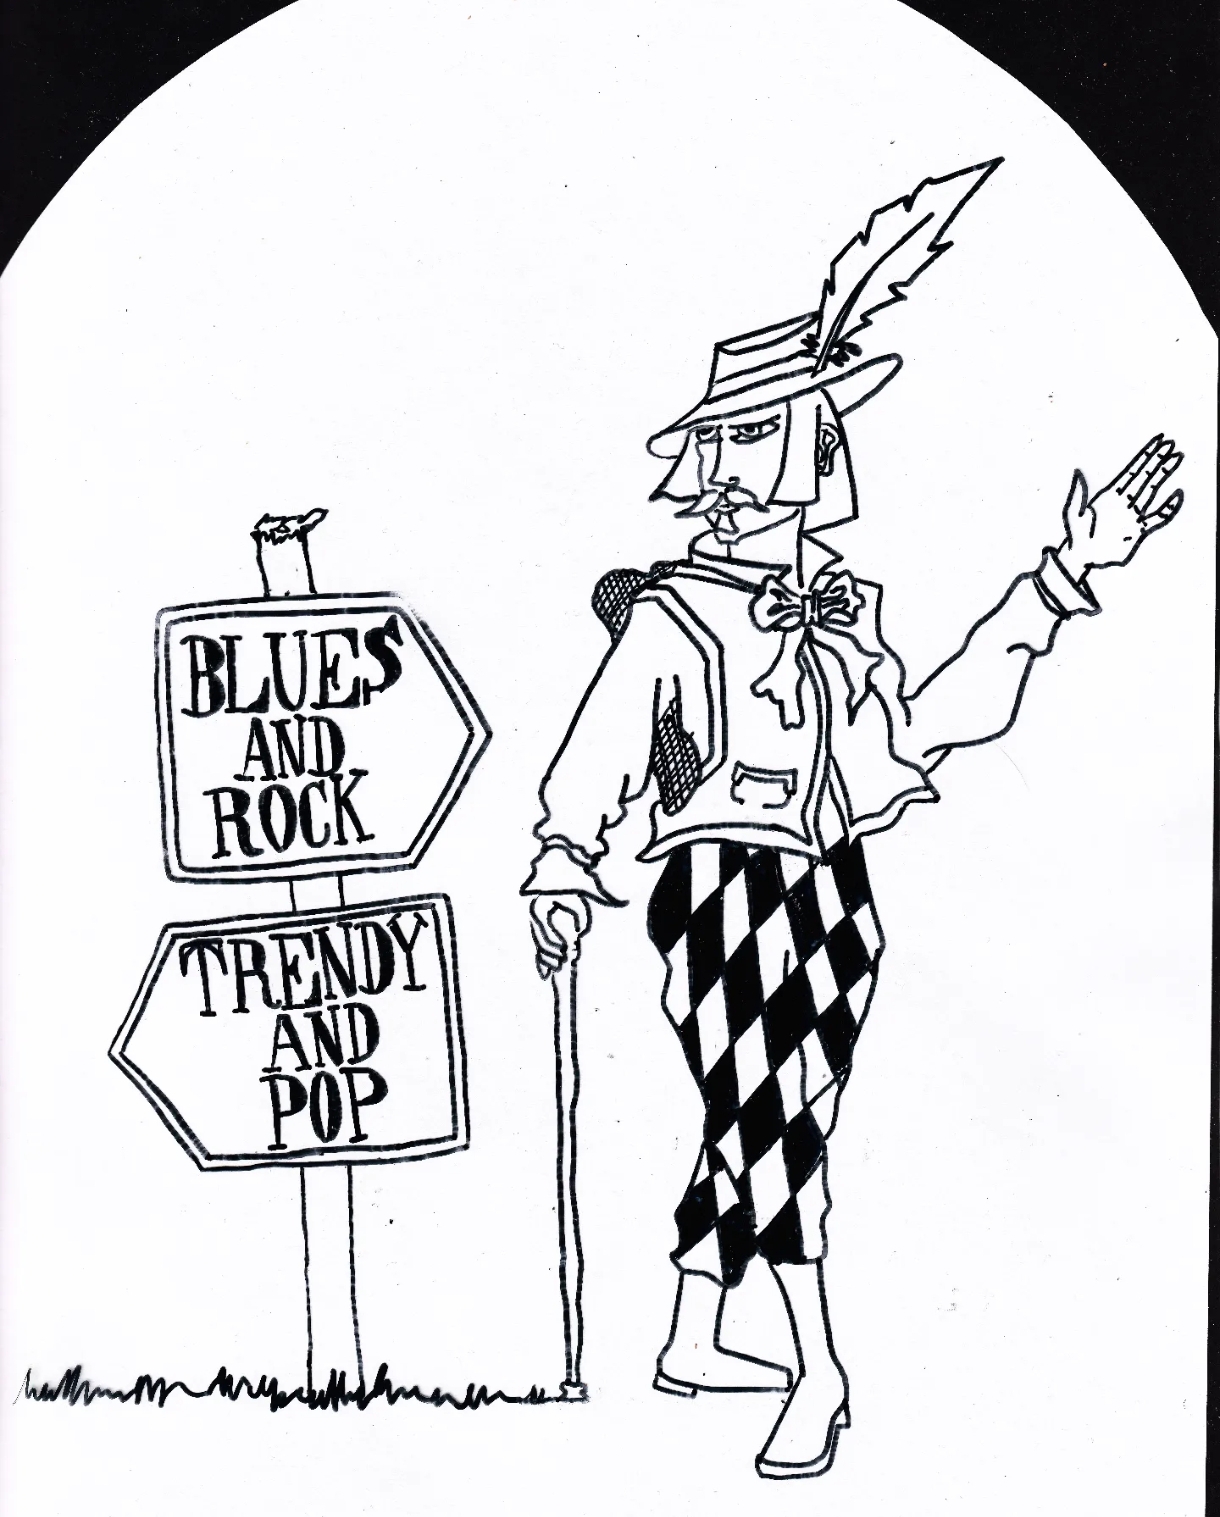 BLUES
AND
ROCK
TRENDY
AND
POP